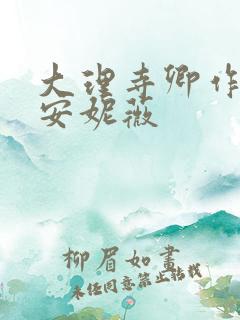 大理寺卿作
安妮薇
柳眉如画
未经同意禁止转载